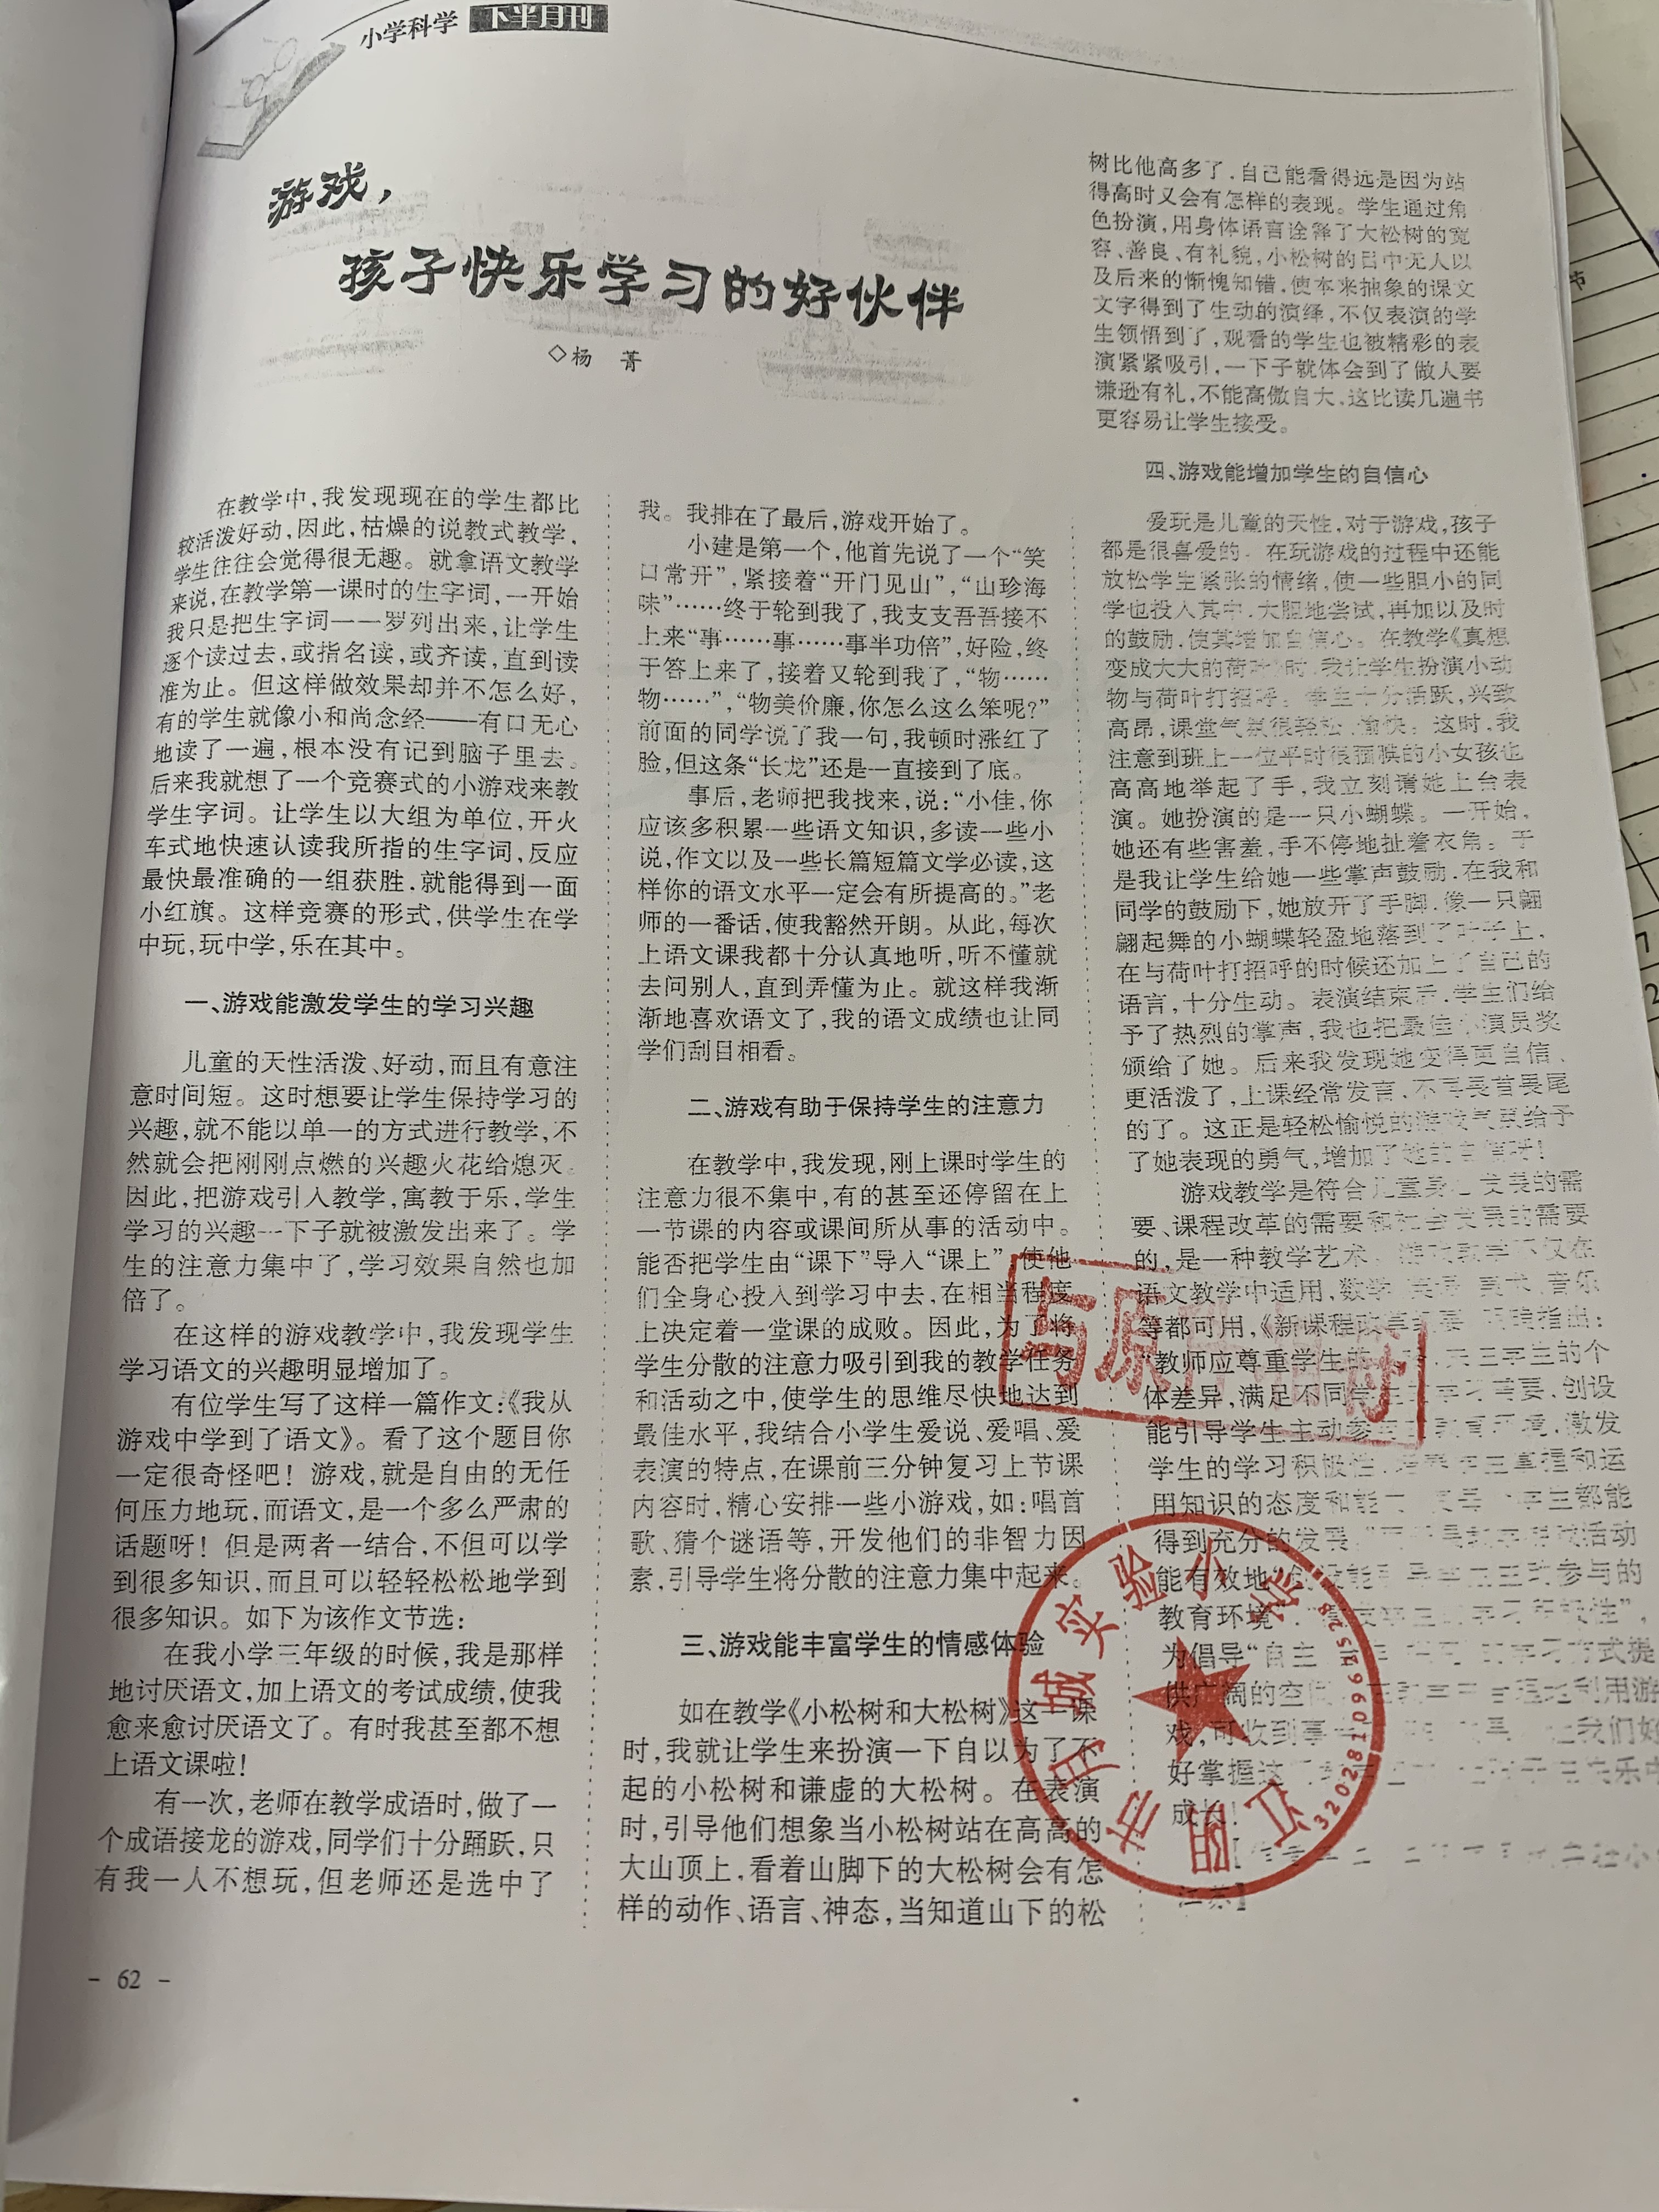 小学科学 下半月刊
游戏，
孩子快乐学习的好伙伴
◇杨 菁
在教学中，我发现现在的学生都比
较活泼好动，因此，枯燥的说教式教学，
学生往往会觉得很无趣。就拿语文教学
来说，在教学第一课时的生字词，一开始
我只是把生字词一一罗列出来，让学生
逐个读过去，或指名读，或齐读，直到读
准为止。但这样做效果却并不怎么好，
有的学生就像小和尚念经——有口无心
地读了一遍，根本没有记到脑子里去。
后来我就想了一个竞赛式的小游戏来教
学生字词。让学生以大组为单位，开火
车式地快速认读我所指的生字词，反应
最快最准确的一组获胜，就能得到一面
小红旗。这样竞赛的形式，供学生在学
中玩，玩中学，乐在其中。
一、游戏能激发学生的学习兴趣
儿童的天性活泼、好动，而且有意注
意时间短。这时想要让学生保持学习的
兴趣，就不能以单一的方式进行教学，不
然就会把刚刚点燃的兴趣火花给熄灭。
因此，把游戏引入教学，寓教于乐，学生
学习的兴趣一下子就被激发出来了。学
生的注意力集中了，学习效果自然也加
倍了。
在这样的游戏教学中，我发现学生
学习语文的兴趣明显增加了。
有位学生写了这样一篇作文：《我从
游戏中学到了语文》。看了这个题目你
一定很奇怪吧！游戏，就是自由的无任
何压力地玩，而语文，是一个多么严肃的
话题呀！但是两者一结合，不但可以学
到很多知识，而且可以轻轻松松地学到
很多知识。如下为该作文节选：
在我小学三年级的时候，我是那样
地讨厌语文，加上语文的考试成绩，使我
愈来愈讨厌语文了。有时我甚至都不想
上语文课啦！
有一次，老师在教学成语时，做了一
个成语接龙的游戏，同学们十分踊跃，只
有我一人不想玩，但老师还是选中了
我。我排在了最后，游戏开始了。
小建是第一个，他首先说了一个“笑
口常开”，紧接着“开门见山”，“山珍海
味”……终于轮到我了，我支支吾吾接不
上来“事……事……事半功倍”，好险，终
于答上来了，接着又轮到我了，“物……
物……”，“物美价廉，你怎么这么笨呢？”
前面的同学说了我一句，我顿时涨红了
脸，但这条“长龙”还是一直接到了底。
事后，老师把我找来，说：“小佳，你
应该多积累一些语文知识，多读一些小
说，作文以及一些长篇短篇文学必读，这
样你的语文水平一定会有所提高的。”老
师的一番话，使我豁然开朗。从此，每次
上语文课我都十分认真地听，听不懂就
去问别人，直到弄懂为止。就这样我渐
渐地喜欢语文了，我的语文成绩也让同
学们刮目相看。
二、游戏有助于保持学生的注意力
在教学中，我发现，刚上课时学生的
注意力很不集中，有的甚至还停留在上
一节课的内容或课间所从事的活动中。
能否把学生由“课下”导入“课上”，使他
们全身心投入到学习中去，在相当程度
上决定着一堂课的成败。因此，为了将
学生分散的注意力吸引到我的教学任务
和活动之中，使学生的思维尽快地达到
最佳水平，我结合小学生爱说、爱唱、爱
表演的特点，在课前三分钟复习上节课
内容时，精心安排一些小游戏，如：唱首
歌、猜个谜语等，开发他们的非智力因
素，引导学生将分散的注意力集中起来。
三、游戏能丰富学生的情感体验
如在教学《小松树和大松树》这一课
时，我就让学生来扮演一下自以为了不
起的小松树和谦虚的大松树。在表演
时，引导他们想象当小松树站在高高的
大山顶上，看着山脚下的大松树会有怎
样的动作、语言、神态，当知道山下的松
树比他高多了，自己能看得远是因为站
得高时又会有怎样的表现。学生通过角
色扮演，用身体语言诠释了大松树的宽
容、善良、有礼貌，小松树的目中无人以
及后来的惭愧知错，使本来抽象的课文
文字得到了生动的演绎，不仅表演的学
生领悟到了，观看的学生也被精彩的表
演紧紧吸引，一下子就体会到了做人要
谦逊有礼，不能高傲自大，这比读几遍书
更容易让学生接受。
四、游戏能增加学生的自信心
爱玩是儿童的天性，对于游戏，孩子
都是很喜爱的。在玩游戏的过程中还能
放松学生紧张的情绪，使一些胆小的同
学也投入其中，大胆地尝试，再加以及时
的鼓励，使其增加自信心。在教学《真想
变成大大的荷叶》时，我让学生扮演小动
物与荷叶打招呼。学生十分活跃，兴致
高昂，课堂气氛很轻松、愉快。这时，我
注意到班上一位平时很腼腆的小女孩也
高高地举起了手，我立刻请她上台表
演。她扮演的是一只小蝴蝶。一开始，
她还有些害羞，手不停地扯着衣角。于
是我让学生给她一些掌声鼓励，在我和
同学的鼓励下，她放开了手脚，像一只翩
翩起舞的小蝴蝶轻盈地落到了叶子上，
在与荷叶打招呼的时候还加上了自己的
语言，十分生动。表演结束后，学生们给
予了热烈的掌声，我也把最佳小演员奖
颁给了她。后来我发现她变得更自信、
更活泼了，上课经常发言，不再畏首畏尾
的了。这正是轻松愉悦的游戏气氛给予
了她表现的勇气，增加了她的自信呀！
游戏教学是符合儿童身心发展的需
要、课程改革的需要和社会发展的需要
的，是一种教学艺术。游戏教学不仅在
语文教学中适用，数学、美术、音乐
等都可用，《新课程改革纲要》明确指出：
“教师应尊重学生的，关注学生的个
体差异，满足不同学生的学习需要，创设
能引导学生主动参与的教育环境，激发
学生的学习积极性，培养学生掌握和运
用知识的态度和能力，学生都能
得到充分的发展。”活动
能有效地主动参与的
教育环境”，“学习积极性”，
为倡导“自主学习方式提
供广阔的空间。利用游
戏，可收到事我们好
好掌握这快乐中
成长！
江苏】
与原件相符
江阴市月城实验小学
- 62 -